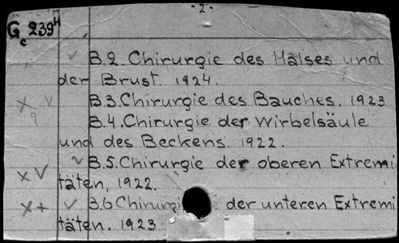 - 2 -
Gc 239H
B.2. Chirurgie des Halses und
der Brust. 1924.
B.3. Chirurgie des Bauches. 1923
B.4. Chirurgie der Wirbelsäule
und des Beckens. 1922.
B.5. Chirurgie der oberen Extremi
täten, 1922.
B.6 Chirurgie der unteren Extremi
täten. 1923